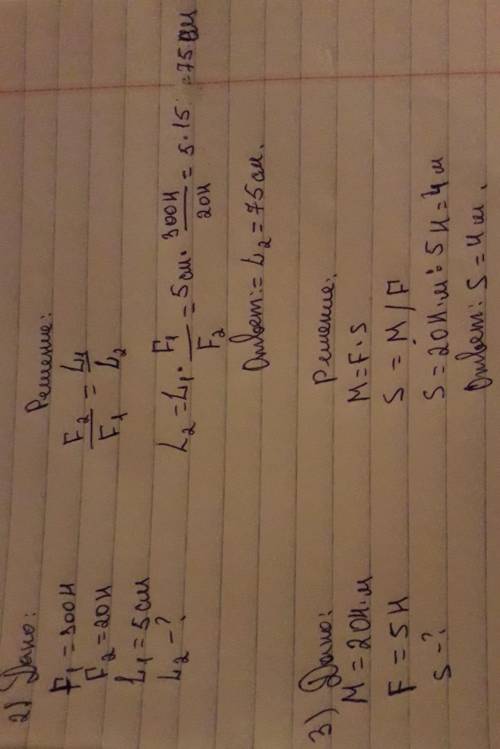 2) Дано:
F₁ = 300Н
F₂ = 20Н
L₁ = 5см
L₂ - ?
Решение:
F₂/F₁ = L₁/L₂
L₂ = L₁ · F₁/F₂ = 5см · 300Н/20Н = 5 · 15 = 75см
Ответ: = L₂ = 75см.
3) Дано:
M = 20Н·м
F = 5Н
S - ?
Решение:
M = F · S
S = M / F
S = 20Н·м : 5Н = 4м
Ответ: S = 4м.